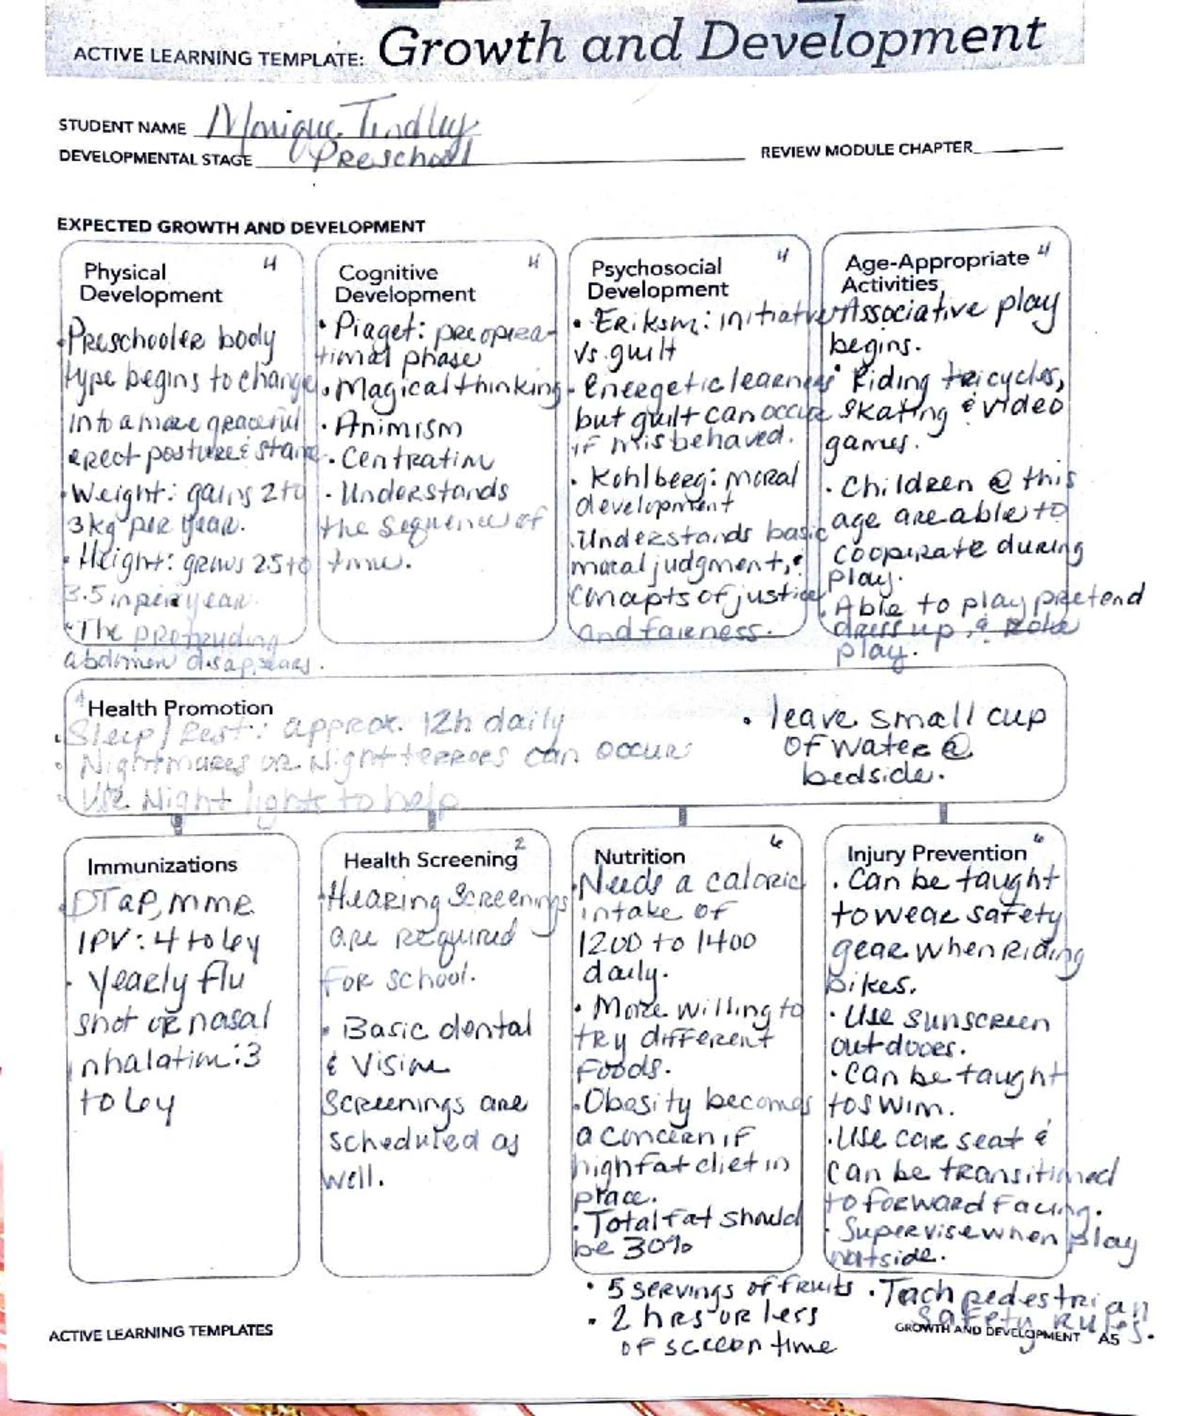 ACTIVE LEARNING TEMPLATE: Growth and Development
STUDENT NAME Monique Tindley
DEVELOPMENTAL STAGE Preschool
REVIEW MODULE CHAPTER
EXPECTED GROWTH AND DEVELOPMENT
Physical 4
Development
• Preschooler body
type begins to change
into a more graceful
erect posture & stance
• Weight: gains 2 to
3 kg per year.
• Height: grows 2.5 to
3.5 in per year.
• The protruding
abdomen disappears.
Cognitive 4
Development
• Piaget: preopera-
tional phase
• Magical thinking
• Animism
• Centration
• Understands
the sequence of
time.
Psychosocial 4
Development
• Erikson: initiative
vs guilt
• Energetic learners
but guilt can occur
if misbehaved.
• Kohlberg: moral
development
• Understands basic
moral judgment,
concepts of justice
and fairness.
Age-Appropriate 4
Activities
• Associative play
begins.
• Riding tricycles,
skating & video
games.
• Children @ this
age are able to
cooperate during
play.
• Able to play pretend
dress up & role
play.
4
Health Promotion
• Sleep/Rest: approx. 12h daily
• Nightmares or Night terrors can occur
• Use Night lights to help
• leave small cup
of water @
bedside.
Immunizations
• DTaP, MMR
IPV: 4 to 6y
• Yearly flu
shot or nasal
inhalation: 3
to 6y
Health Screening 2
• Hearing Screenings
are required
for school.
• Basic dental
& vision
Screenings are
scheduled as
well.
Nutrition 6
• Needs a caloric
intake of
1200 to 1400
daily.
• More willing to
try different
foods.
• Obesity becomes
a concern if
high fat diet in
place.
• Total fat should
be 30%
• 5 servings of fruits
• 2 hrs or less
of screen time
Injury Prevention 6
• Can be taught
to wear safety
gear when riding
bikes.
• Use sunscreen
outdoors.
• Can be taught
to swim.
• Use car seat &
can be transitioned
to forward facing.
• Supervise when play
outside.
• Teach pedestrian
safety rules.
ACTIVE LEARNING TEMPLATES
GROWTH AND DEVELOPMENT A5